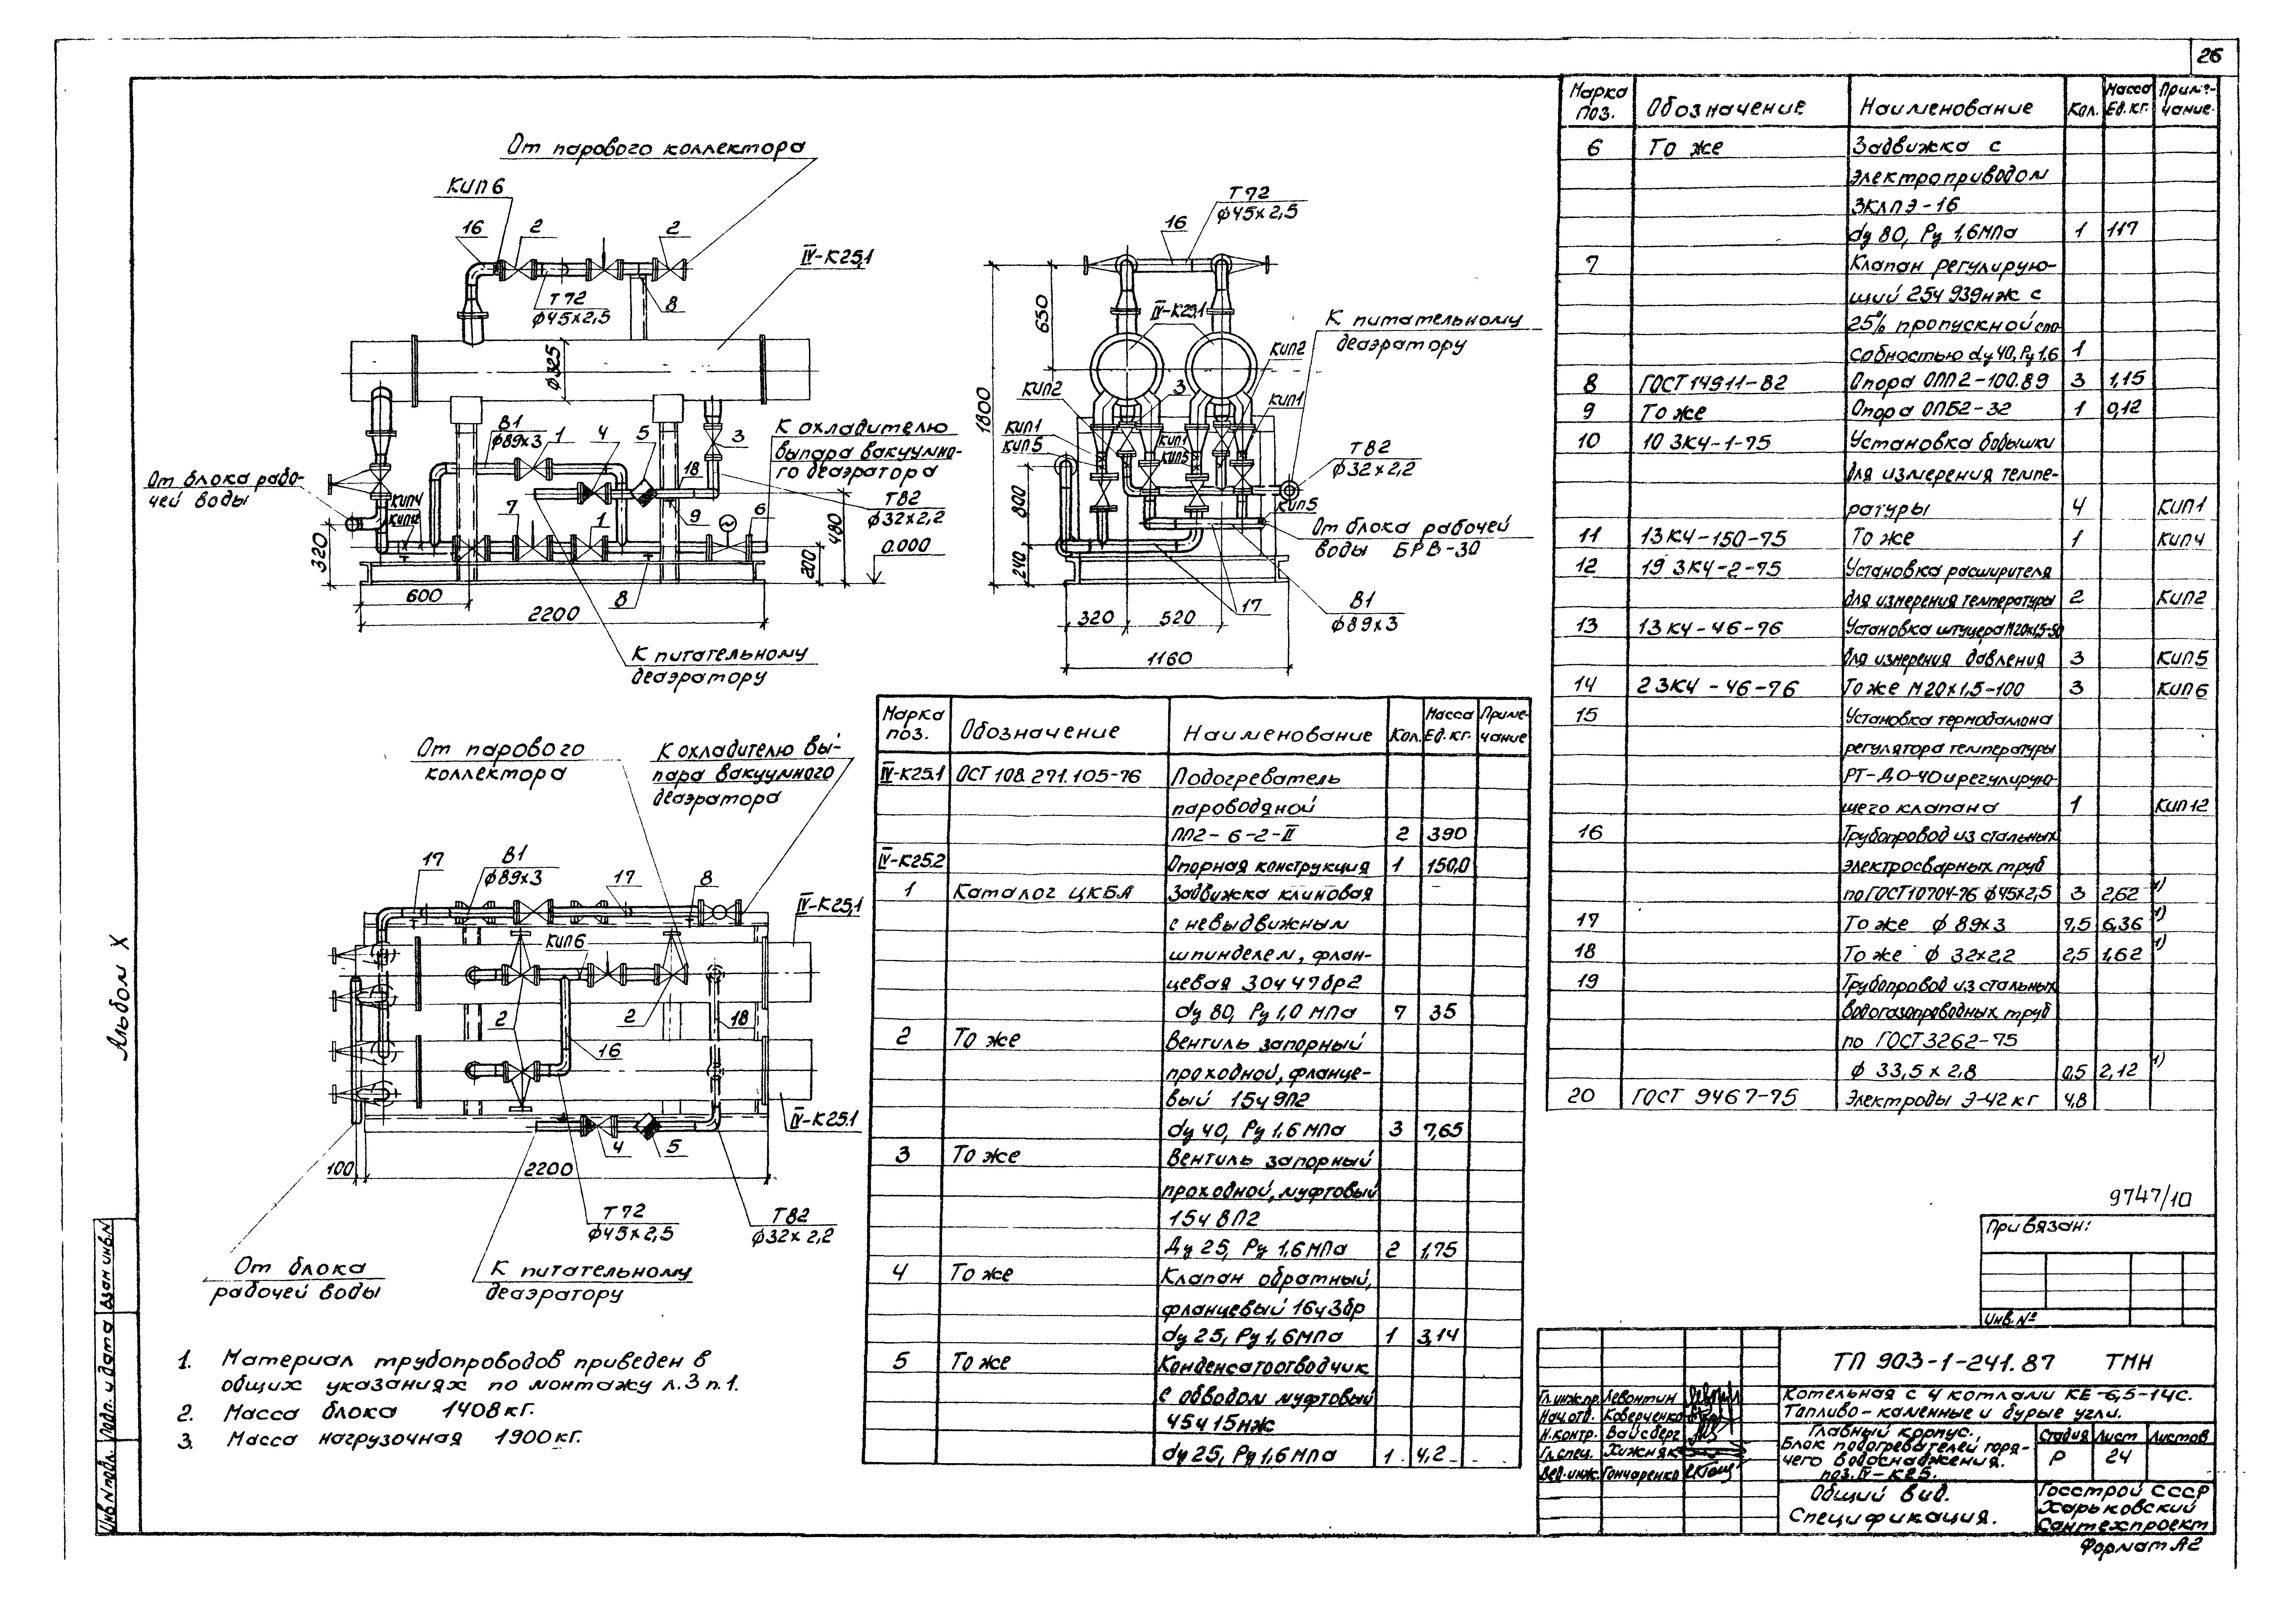 26
От парового коллектора
КИП6
16
2
2
IV-К25.1
Т72
ф45х2,5
8
ф325
В1
ф89х3
1
4
5
3
18
К охладителю
выпара вакуумно-
го деаэратора
Т82
ф32х2,2
От блока рабо-
чей воды
КИП4
КИП12
7
1
9
6
320
480
200
0.000
600
2200
8
К питательному
деаэратору
16
Т72
ф45х2,5
1800
650
IV-К25.1
К питательному
деаэратору
КИП2
КИП2
3
КИП1
КИП5
КИП1
КИП5
КИП1
Т82
ф32х2,2
800
240
КИП5
От блока рабочей
воды БРВ-30
17
В1
ф89х3
320
520
1160
От парового
коллектора
К охладителю вы-
пара вакуумного
деаэратора
17
В1
ф89х3
17
8
IV-К25.1
КИП6
2
2
18
16
IV-К25.1
4
5
100
2200
Т72
ф45х2,5
Т82
ф32х2,2
От блока
рабочей воды
К питательному
деаэратору
1. Материал трубопроводов приведен в
общих указаниях по монтажу л.3 п.1.
2. Масса блока 1408кг.
3. Масса нагрузочная 1900кг.
Марка поз. Обозначение Наименование Кол. Масса Ед.кг. Приме-чание
IV-К25.1 ОСТ 108.271.105-76 Подогреватель
пароводяной
ПП2-6-2-II 2 390
IV-К25.2 Опорная конструкция 1 150,0
1 Каталог ЦКБА Задвижка клиновая
с невыдвижным
шпинделем, флан-
цевая 30ч47бр2
dу 80, Ру 1,0 МПа 7 35
2 То же Вентиль запорный
проходной, фланце-
вый 15ч9П2
dу 40, Ру 1,6 МПа 3 7,65
3 То же Вентиль запорный
проходной, муфтовый
15ч8П2
Ду 25, Ру 1,6МПа 2 1,75
4 То же Клапан обратный,
фланцевый 16ч3бр
dу 25, Ру 1,6МПа 1 3,14
5 То же Конденсатоотводчик
с обводом муфтовый
45ч15нж
dу 25, Ру 1,6МПа 1 4,2
Марка поз. Обозначение Наименование Кол. Масса Ед.кг. Приме-чание
6 То же Задвижка с
электроприводом
ЗКЛПЭ-16
dу 80, Ру 1,6МПа 1 117
7 Клапан регулирую-
щий 25ч939нж с
25% пропускной спо-
собностью dу40, Ру1,6 1
8 ГОСТ 14911-82 Опора ОПП2-100.89 3 1,15
9 То же Опора ОПБ2-32 1 0,12
10 10 ЗК4-1-75 Установка бобышки
для измерения темпе-
ратуры 4 КИП1
11 13К4-150-75 То же 1 КИП4
12 19 ЗК4-2-75 Установка расширителя
для измерения температуры 2 КИП2
13 13К4-46-76 Установка штуцера М20х1,5-50
для измерения давления 3 КИП5
14 2ЗК4-46-76 То же М20х1,5-100 3 КИП6
15 Установка термобаллона
регулятора температуры
РТ-ДО-40 и регулирую-
щего клапана 1 КИП12
16 Трубопровод из стальных
электросварных труб
по ГОСТ 10704-76 ф45х2,5 3 2,62 1)
17 То же ф 89х3 7,5 6,36 1)
18 То же ф 32х2,2 2,5 1,62 1)
19 Трубопровод из стальных
водогазопроводных труб
по ГОСТ 3262-75
ф 33,5 х 2,8 0,5 2,12 1)
20 ГОСТ 9467-75 Электроды Э-42 кг 4,8
9747/10
Привязан:
Инв.№
ТП 903-1-241.87 ТМН
Котельная с 4 котлами КЕ-6,5-14С.
Топливо-каменные и бурые угли.
Гл.инж.пр. Левонтин
Нач.отд. Коверченко
Н.контр. Вайсберг
Гл.спец. Хижняк
Вед.инж. Гончаренко
Главный корпус.
Блок подогревателей горя-
чего водоснабжения.
поз. IV-К25.
Стадия Лист Листов
Р 24
Общий вид.
Спецификация.
Госстрой СССР
Харьковский
Сантехпроект
Формат А2
Альбом X
Инв.№подл. Подп. и дата Взам инв.№